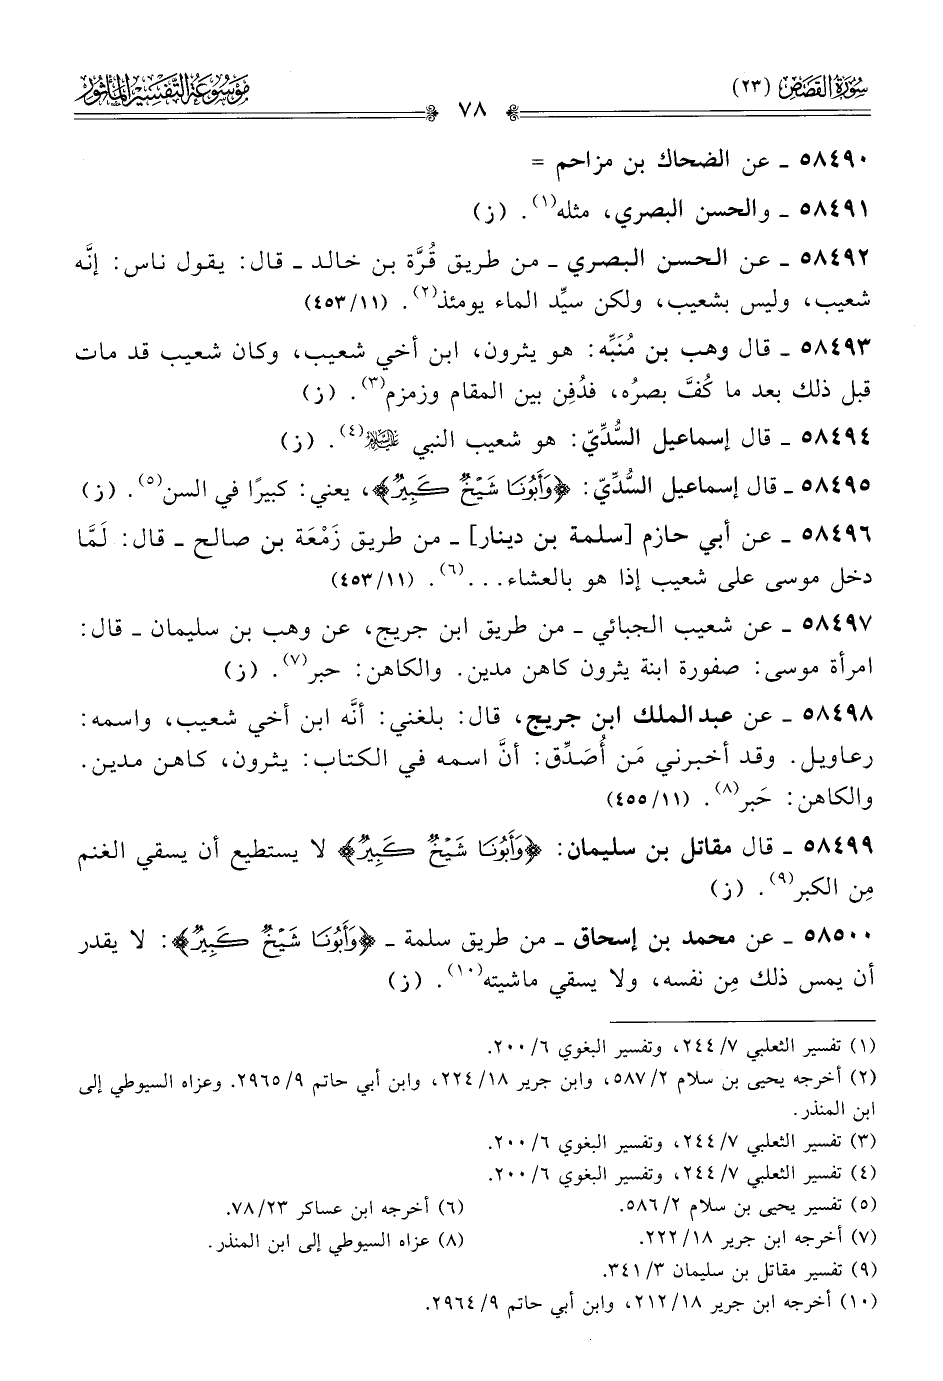 سُورَةُ القَصَصِ (٢٣)
٧٨
مَوْسُوعَةُ التَّفْسِيرِ المَأْثُورِ
٥٨٤٩٠ ـ عن الضحاك بن مزاحم =
٥٨٤٩١ ـ والحسن البصري، مثله(١). (ز)
٥٨٤٩٢ ـ عن الحسن البصري ـ من طريق قُرَّة بن خالد ـ قال: يقول ناس: إنَّه
شعيب، وليس بشعيب، ولكن سيِّد الماء يومئذ(٢). (٤٥٣/١١)
٥٨٤٩٣ ـ قال وهب بن مُنَبِّه: هو يثرون، ابن أخي شعيب، وكان شعيب قد مات
قبل ذلك بعد ما كُفَّ بصرُه، فدُفِن بين المقام وزمزم(٣). (ز)
٥٨٤٩٤ ـ قال إسماعيل السُّدِّيّ: هو شعيب النبي ﵇(٤). (ز)
٥٨٤٩٥ ـ قال إسماعيل السُّدِّيّ: ﴿وَأَبُونَا شَيْخٌ كَبِيرٌ﴾، يعني: كبيرًا في السن(٥). (ز)
٥٨٤٩٦ ـ عن أبي حازم [سلمة بن دينار] ـ من طريق زَمْعَة بن صالح ـ قال: لَمَّا
دخل موسى على شعيب إذا هو بالعشاء...(٦). (٤٥٣/١١)
٥٨٤٩٧ ـ عن شعيب الجبائي ـ من طريق ابن جريج، عن وهب بن سليمان ـ قال:
امرأة موسى: صفورة ابنة يثرون كاهن مدين. والكاهن: حبر(٧). (ز)
٥٨٤٩٨ ـ عن عبد الملك ابن جريج، قال: بلغني: أنَّه ابن أخي شعيب، واسمه:
رعاويل. وقد أخبرني مَن أُصَدِّق: أنَّ اسمه في الكتاب: يثرون، كاهن مدين.
والكاهن: حَبر(٨). (٤٥٥/١١)
٥٨٤٩٩ ـ قال مقاتل بن سليمان: ﴿وَأَبُونَا شَيْخٌ كَبِيرٌ﴾ لا يستطيع أن يسقي الغنم
مِن الكبر(٩). (ز)
٥٨٥٠٠ ـ عن محمد بن إسحاق ـ من طريق سلمة ـ ﴿وَأَبُونَا شَيْخٌ كَبِيرٌ﴾: لا يقدر
أن يمس ذلك مِن نفسه، ولا يسقي ماشيته(١٠). (ز)
(١) تفسير الثعلبي ٢٤٤/٧، وتفسير البغوي ٢٠٠/٦.
(٢) أخرجه يحيى بن سلام ٥٨٧/٢، وابن جرير ٢٢٤/١٨، وابن أبي حاتم ٢٩٦٥/٩. وعزاه السيوطي إلى
ابن المنذر.
(٣) تفسير الثعلبي ٢٤٤/٧، وتفسير البغوي ٢٠٠/٦.
(٤) تفسير الثعلبي ٢٤٤/٧، وتفسير البغوي ٢٠٠/٦.
(٥) تفسير يحيى بن سلام ٥٨٦/٢.
(٦) أخرجه ابن عساكر ٧٨/٢٣.
(٧) أخرجه ابن جرير ٢٢٢/١٨.
(٨) عزاه السيوطي إلى ابن المنذر.
(٩) تفسير مقاتل بن سليمان ٣٤١/٣.
(١٠) أخرجه ابن جرير ٢١٢/١٨، وابن أبي حاتم ٢٩٦٤/٩.